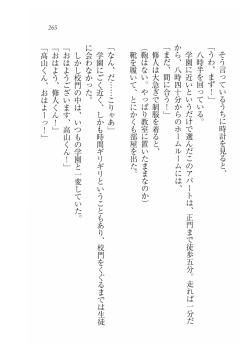 265
そう言っているうちに時計を見ると、
「うわ、まず！」
八時半を回っている。
学園に近いというだけで選んだこのアパートは、正門まで徒歩五分。走れば一分だ
から、八時四十分からのホームルームには、
「まだ、間に合う！」
修人は大急ぎで制服を着ると、
（鞄はない。やっぱり教室に置いたままなのか）
靴を履いて、とにかくも部屋を出た。
「なん、だ……こりゃあ」
学園にごく近く、しかも時間ギリギリということもあり、校門をくぐるまでは生徒
に会わなかった。
しかし校門の中は、いつもの学園と一変していた。
「おはようございます、高山くん！」
「おはよう、修人くん！」
「高山くん、おはよーっ！」